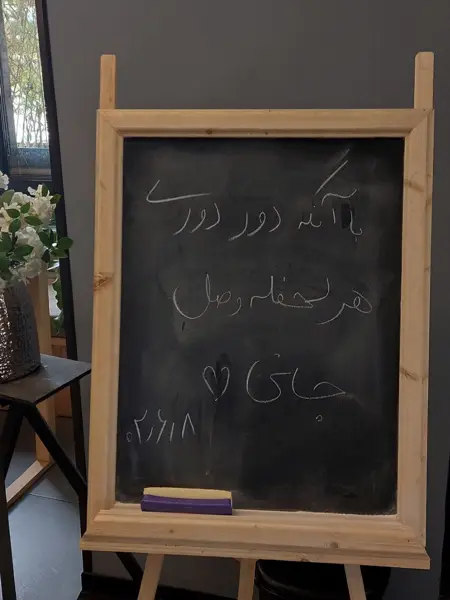 با آنکه دور دوری
هر لحظه وصل
جانی ♡
۰۲٫۶٫۱۸